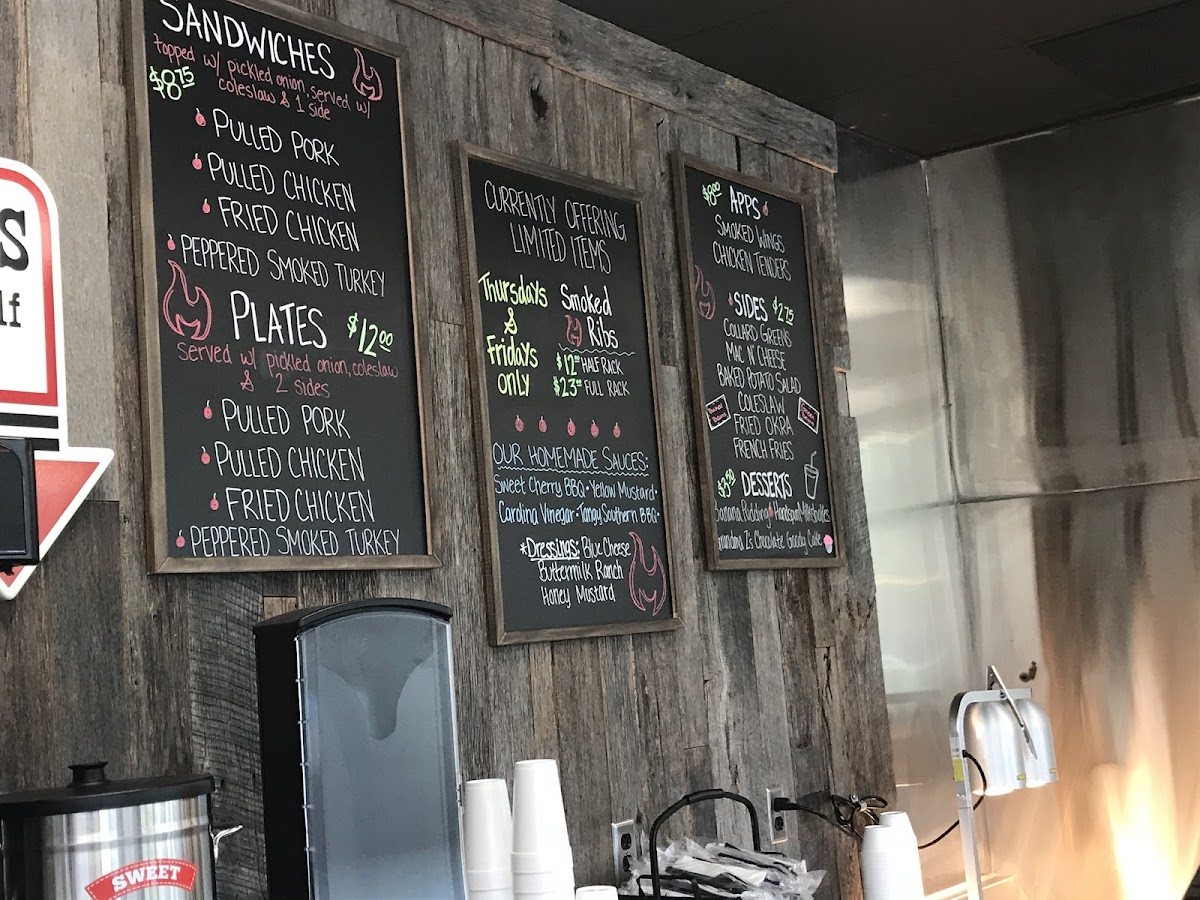 SANDWICHES
topped w/ pickled onion, served w/
coleslaw & 1 side
$8.75
PULLED PORK
PULLED CHICKEN
FRIED CHICKEN
PEPPERED SMOKED TURKEY
PLATES $12.00
served w/ pickled onion, coleslaw
& 2 sides
PULLED PORK
PULLED CHICKEN
FRIED CHICKEN
PEPPERED SMOKED TURKEY
CURRENTLY OFFERING
LIMITED ITEMS
Thursdays
&
Fridays
only
Smoked
Ribs
$12 HALF RACK
$23 FULL RACK
OUR HOMEMADE SAUCES:
Sweet Cherry BBQ • Yellow Mustard •
Carolina Vinegar • Tangy Southern BBQ •
*Dressings: Blue Cheese
Buttermilk Ranch
Honey Mustard
$8.00 APPS
SMOKED WINGS
CHICKEN TENDERS
SIDES $2.75
COLLARD GREENS
MAC N' CHEESE
BAKED POTATO SALAD
COLESLAW
FRIED OKRA
FRENCH FRIES
$3.50 DESSERTS
Banana Pudding Handspun Milkshakes
Grandma Z's Chocolate Cake
S
lf
SWEET